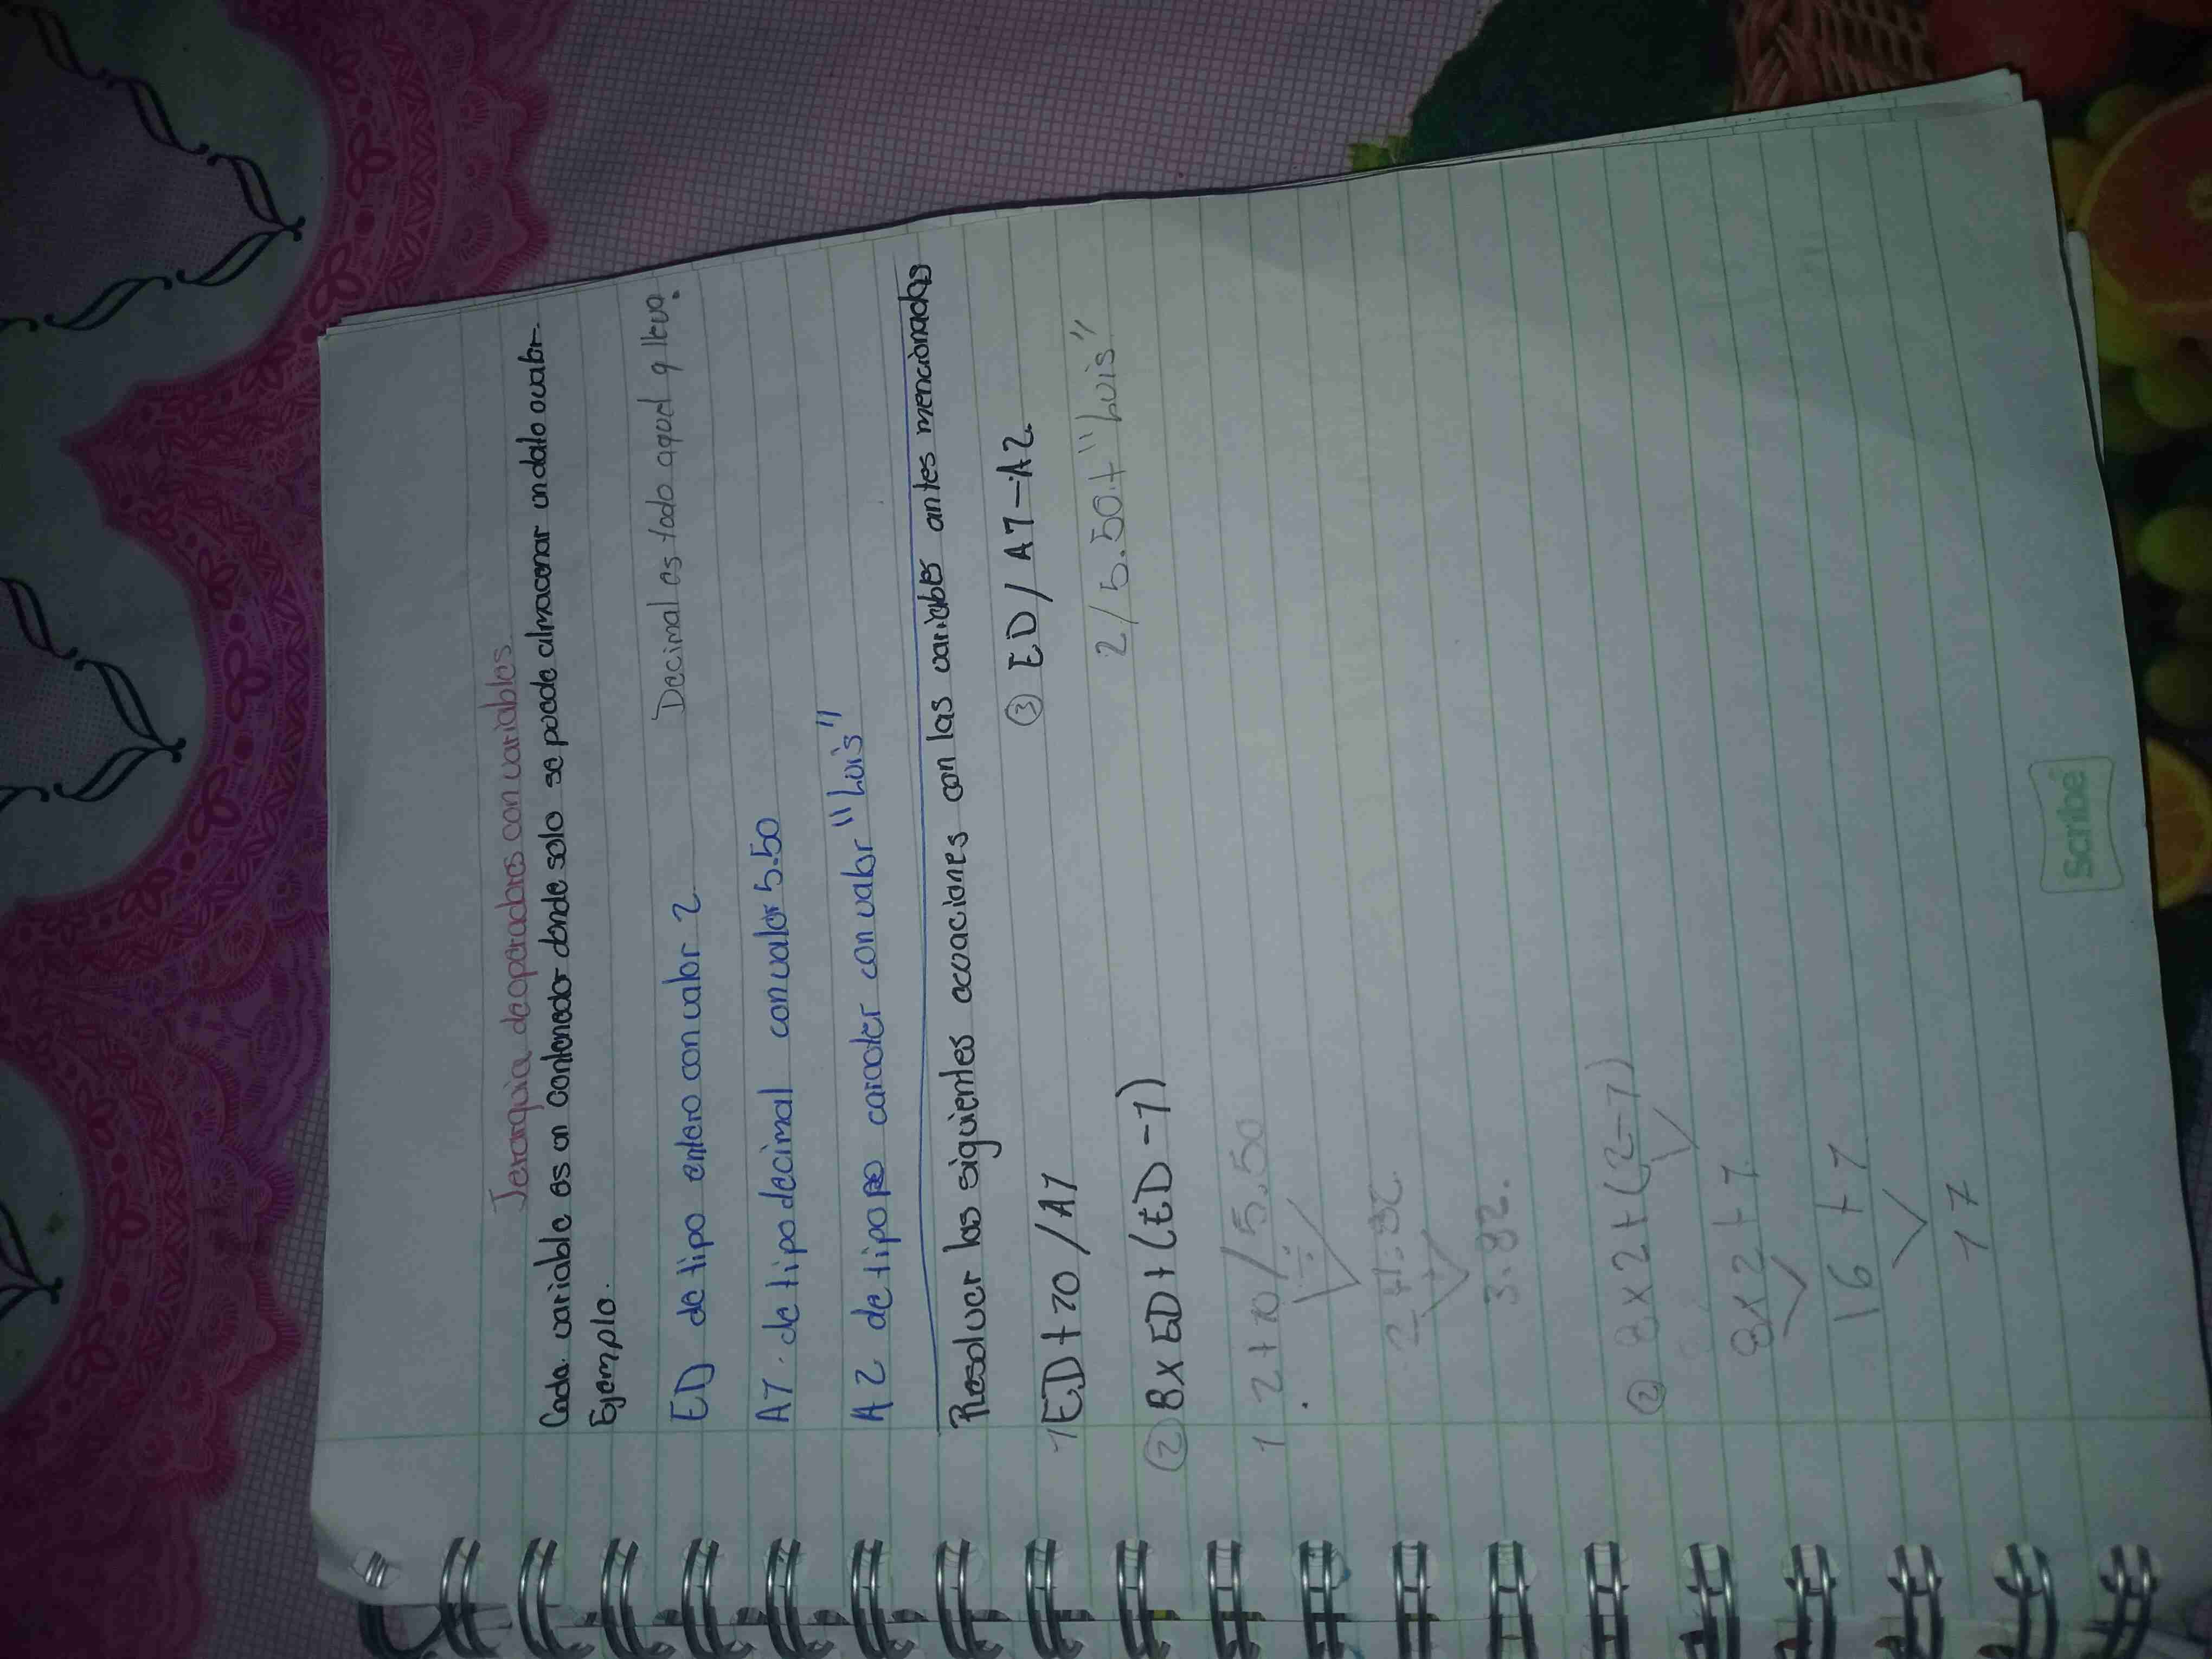 Jerarquia de operadores con variables
Cada variable es un contenedor donde solo se puede almacenar un dato o valor
Ejemplo.
Decimal es todo aquel q lleva.
ED de tipo entero con valor 2
A1 de tipo decimal con valor 5.50
A2 de tipo caracter con valor "Luis"
Resolver las siguientes ecuaciones con las variables antes mencionadas
1 ED+10/A1
③ ED/A1-A2
② 8x ED+(ED-1)
2/5.50+"Luis"
1 2+10/5.50
÷
2+1.82
+
3.82.
② 8x2+(2-1)
8x2+1
16+1
17
Scribe